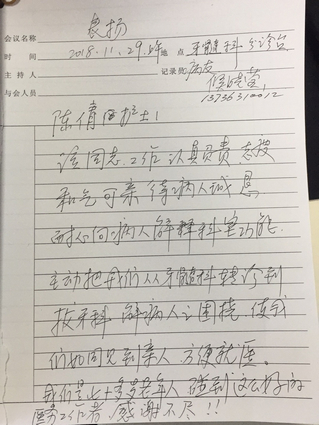 会议名称 表扬
时间 2018.11.29.上午 地点 牙髓科分诊台
主持人 记录员 病友
与会人员
13736310012
陈倩 护士！
该同志工作认真负责，态度
和气可亲，待病人诚恳，
耐心向病人解释科室功能，
主动把我们从牙髓科转诊到
拔牙科，解病人之困挠，使我
们如同见到亲人，方便就医。
我们是七十多岁老年人，碰到这么好的
医务工作者，感谢不尽！！